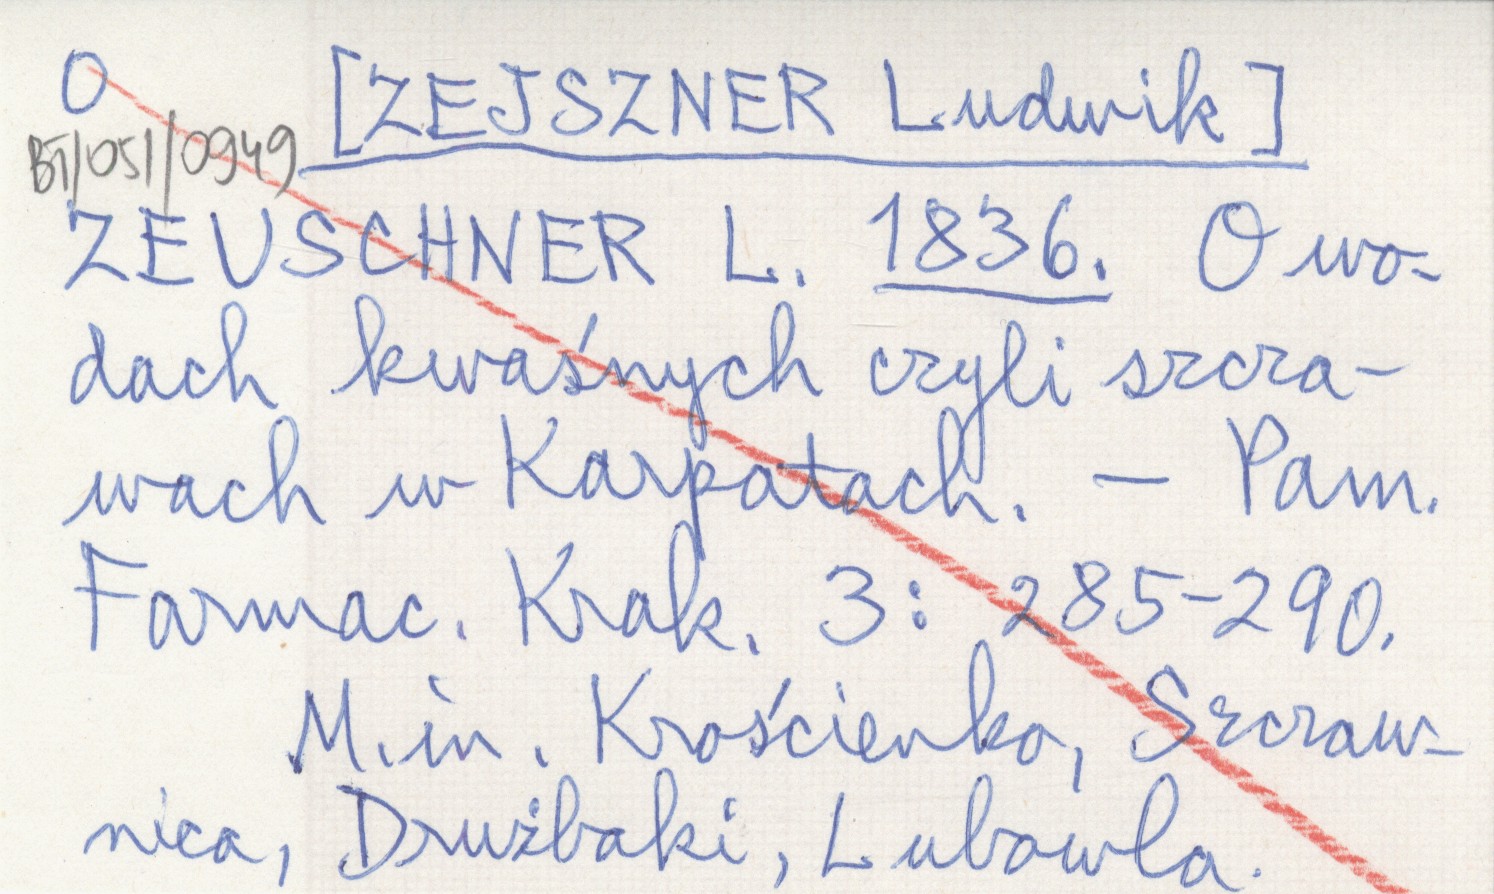 O
[ZEJSZNER Ludwik]
BT/051/0949
ZEUSCHNER L. 1836. O wo-
dach kwaśnych czyli szcza-
wach w Karpatach. — Pam.
Farmac. Krak. 3: 285-290.
M.in. Krościenko, Szczaw-
nica, Drużbaki, Lubowla.